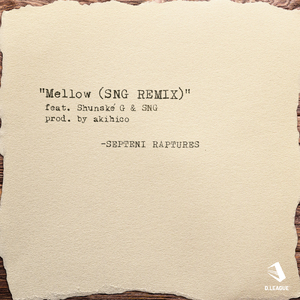 "Mellow (SNG REMIX)"
feat. Shunské G & SNG
prod. by akihico
-SEPTENI RAPTURES
D.LEAGUE